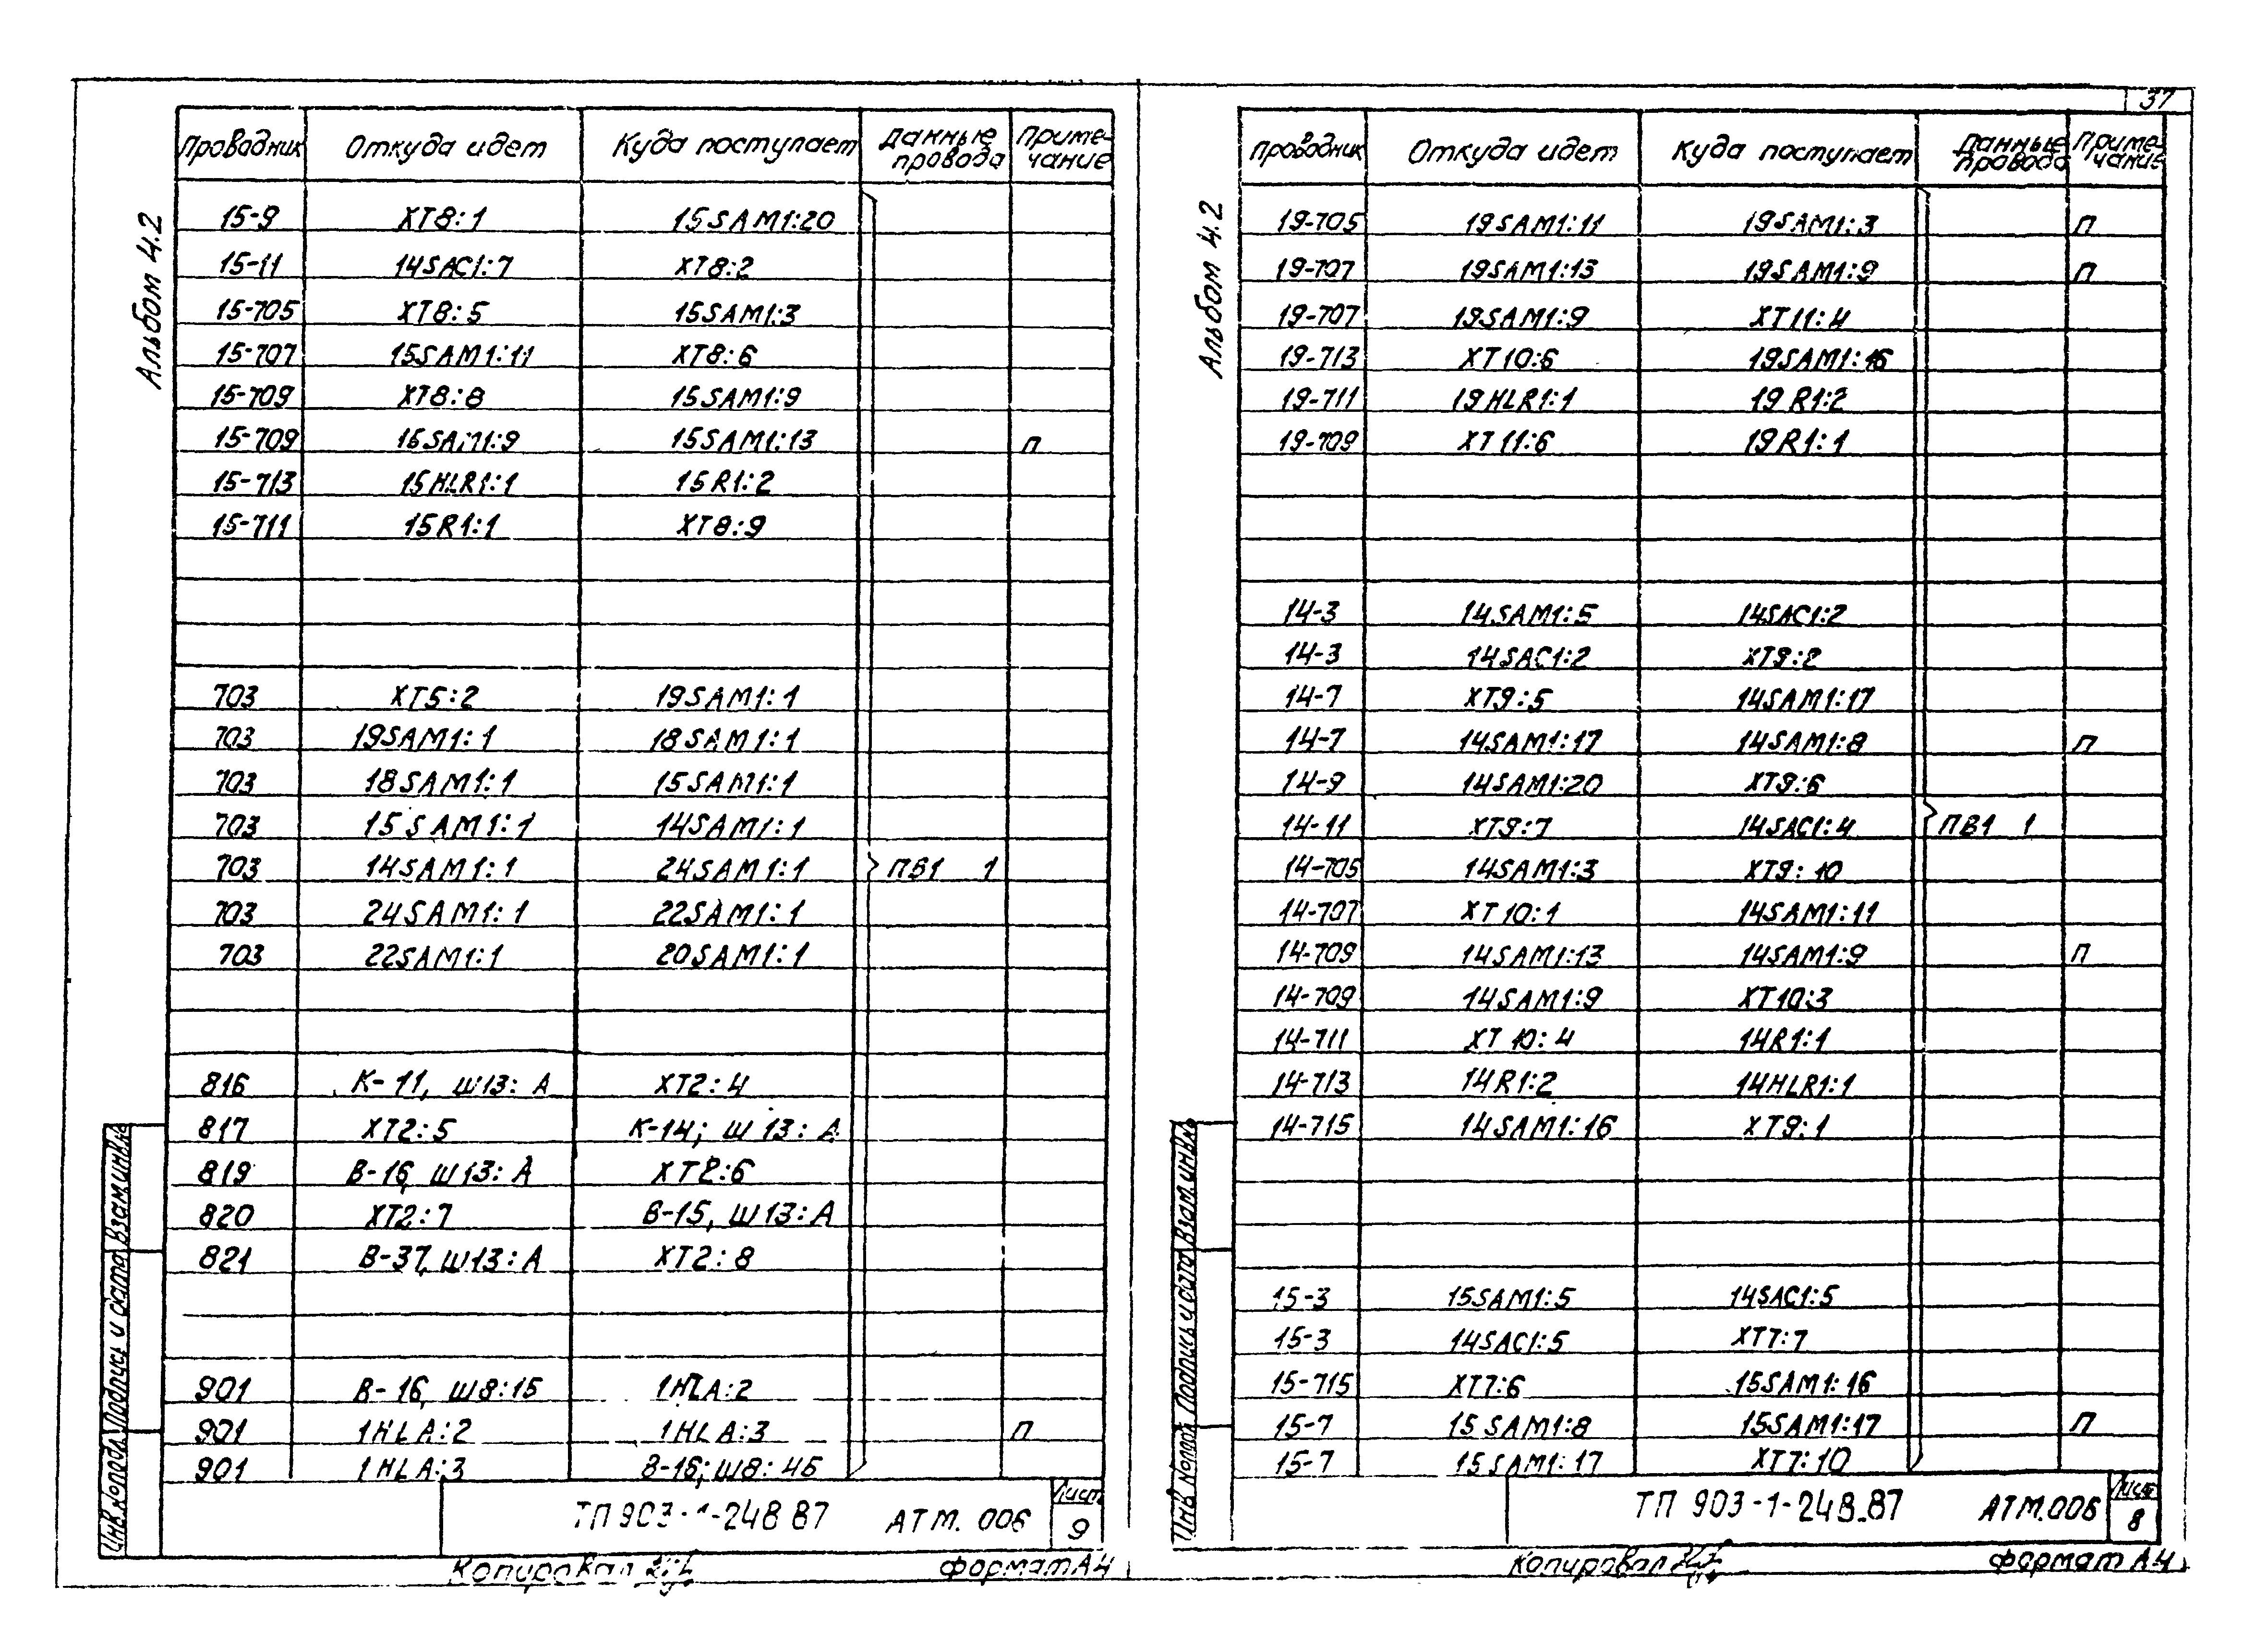 37
Альбом 4.2
Проводник Откуда идет Куда поступает Данные провода Примечание
15-9 XT8:1 15SAM1:20
15-11 14SAC1:7 XT8:2
15-705 XT8:5 15SAM1:3
15-707 15SAM1:11 XT8:6
15-709 XT8:8 15SAM1:9
15-709 15SAM1:9 15SAM1:13 П
15-713 15HLR1:1 15R1:2
15-711 15R1:1 XT8:9
703 XT5:2 19SAM1:1
703 19SAM1:1 18SAM1:1
703 18SAM1:1 15SAM1:1
703 15SAM1:1 14SAM1:1
703 14SAM1:1 24SAM1:1 ПВ1 1
703 24SAM1:1 22SAM1:1
703 22SAM1:1 20SAM1:1
816 К-11, Ш13:А XT2:4
817 XT2:5 К-14; Ш13:А
819 В-16, Ш13:А XT2:6
820 XT2:7 В-15, Ш13:А
821 В-37, Ш13:А XT2:8
901 В-16, Ш8:15 1HLA:2
901 1HLA:2 1HLA:3 П
901 1HLA:3 В-16; Ш8:4Б
Инв.№подл. Подпись и дата Взам.инв.№
ТП 903-1-248.87 АТМ.006 Лист 9
Копировал Формат А4
Альбом 4.2
Проводник Откуда идет Куда поступает Данные провода Примечание
19-705 19SAM1:11 19SAM1:3 П
19-707 19SAM1:13 19SAM1:9 П
19-707 19SAM1:9 XT11:4
19-713 XT10:6 19SAM1:16
19-711 19HLR1:1 19R1:2
19-709 XT11:6 19R1:1
14-3 14SAM1:5 14SAC1:2
14-3 14SAC1:2 XT9:2
14-7 XT9:5 14SAM1:17
14-7 14SAM1:17 14SAM1:8 П
14-9 14SAM1:20 XT9:6
14-11 XT9:7 14SAC1:4 ПВ1 1
14-705 14SAM1:3 XT9:10
14-707 XT10:1 14SAM1:11
14-709 14SAM1:13 14SAM1:9 П
14-709 14SAM1:9 XT10:3
14-711 XT10:4 14R1:1
14-713 14R1:2 14HLR1:1
14-715 14SAM1:16 XT9:1
15-3 15SAM1:5 14SAC1:5
15-3 14SAC1:5 XT7:7
15-715 XT7:6 15SAM1:16
15-7 15SAM1:8 15SAM1:17 П
15-7 15SAM1:17 XT7:10
Инв.№подл. Подпись и дата Взам.инв.№
ТП 903-1-248.87 АТМ.006 Лист 8
Копировал Формат А4